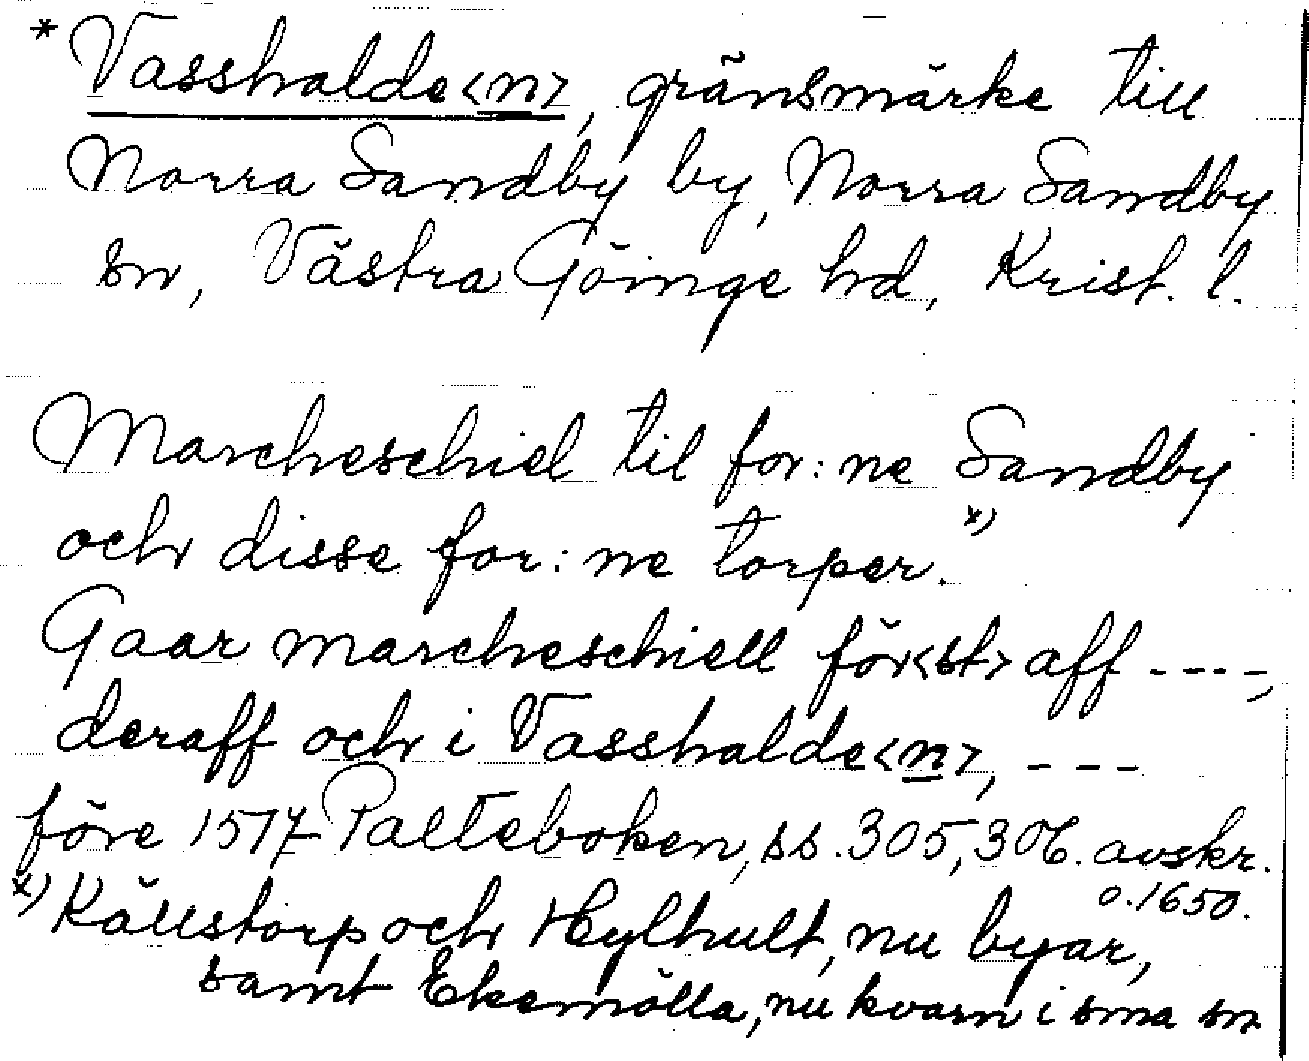 * Vasshalde<n>, gränsmärke till
Norra Sandby by, Norra Sandby
sn, Västra Göinge hd, Krist. l.
Marcheschiel til for:ne Sandby
och disse for:ne torper. x)
Gaar marcheschiell för<st> aff ----,
deraff och i Vasshalde<n>, ---
före 1517 Palteboken, ss. 305, 306. avskr.
o. 1650.
x) Källstorp och Hylhult, nu byar,
samt Ekemölla, nu kvarn i sma sn